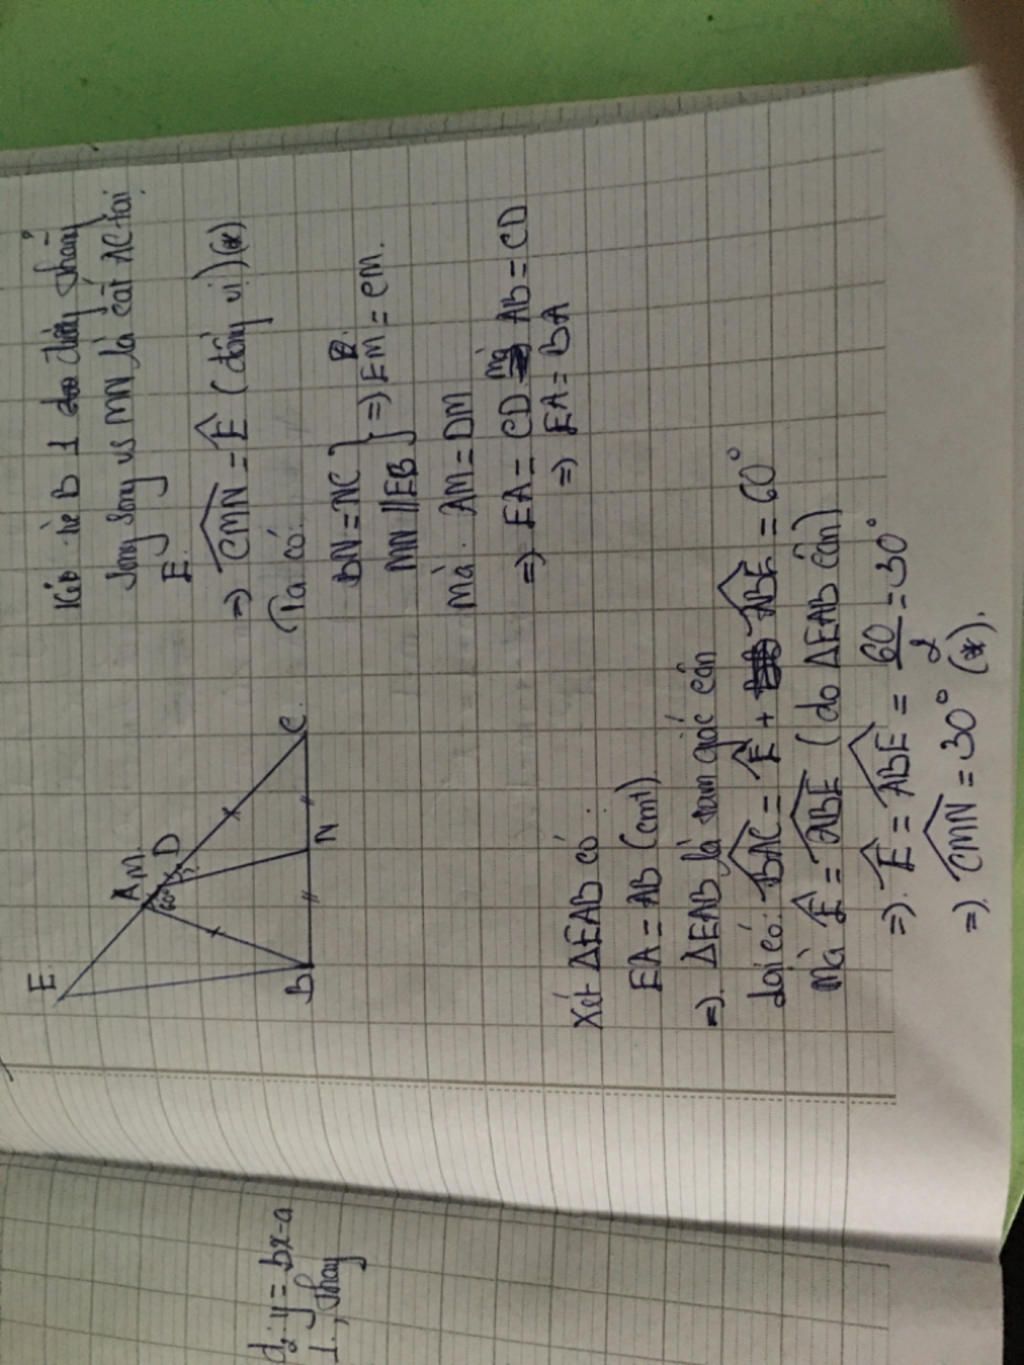 E
A M.
60°
D
?
B
N
C.
Kéo từ B 1 đường thẳng
song song vs MN là cắt AC tại
E.
=> CMN = E (đồng vị) (*)
Ta có:
BN = NC
MN // EB } => EM = CM.
Mà: AM = DM
=> EA = CD mà AB = CD
=> EA = BA
Xét ΔEAB có:
EA = AB (cmt)
=>. ΔEAB là tam giác cân
Lại có: BAC = E + ABE = 60°
Mà E = ABE (do ΔEAB cân)
=>. E = ABE = 60/2 = 30°
=>. CMN = 30° (*).
d₂: y = bx - a
1., thay